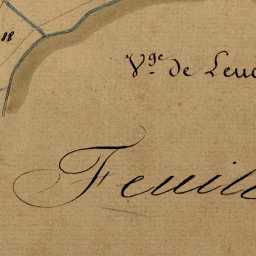 18
V.ge de Leuc
Feuil